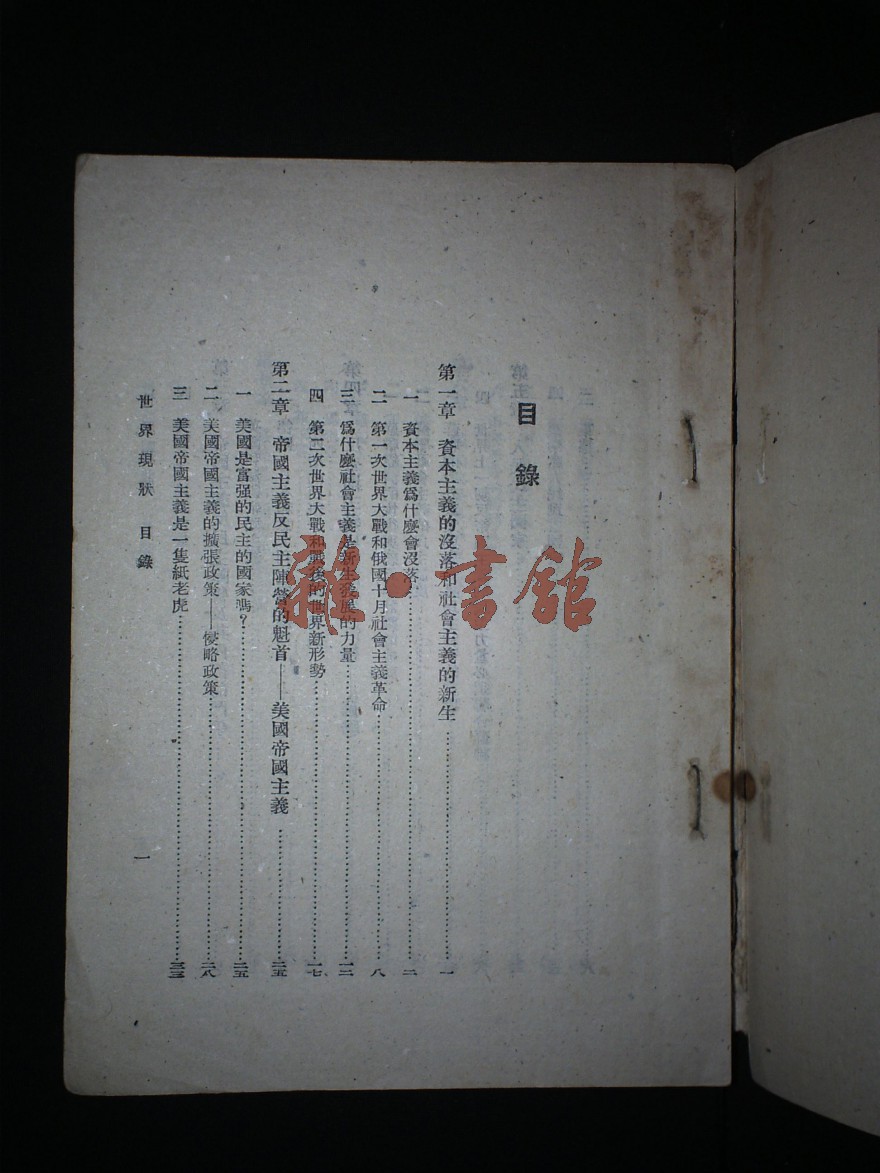 目錄
第一章 資本主義的沒落和社會主義的新生……一
一 資本主義爲什麼會沒落……二
二 第一次世界大戰和俄國十月社會主義革命……八
三 爲什麼社會主義是新生發展的力量……一二
四 第二次世界大戰和戰後的世界新形勢……一七
第二章 帝國主義反民主陣營的魁首——美國帝國主義……二五
一 美國是富强的民主的國家嗎？……二五
二 美國帝國主義的擴張政策——侵略政策……二八
三 美國帝國主義是一隻紙老虎……三三
世界現狀 目錄 一
雜·書館